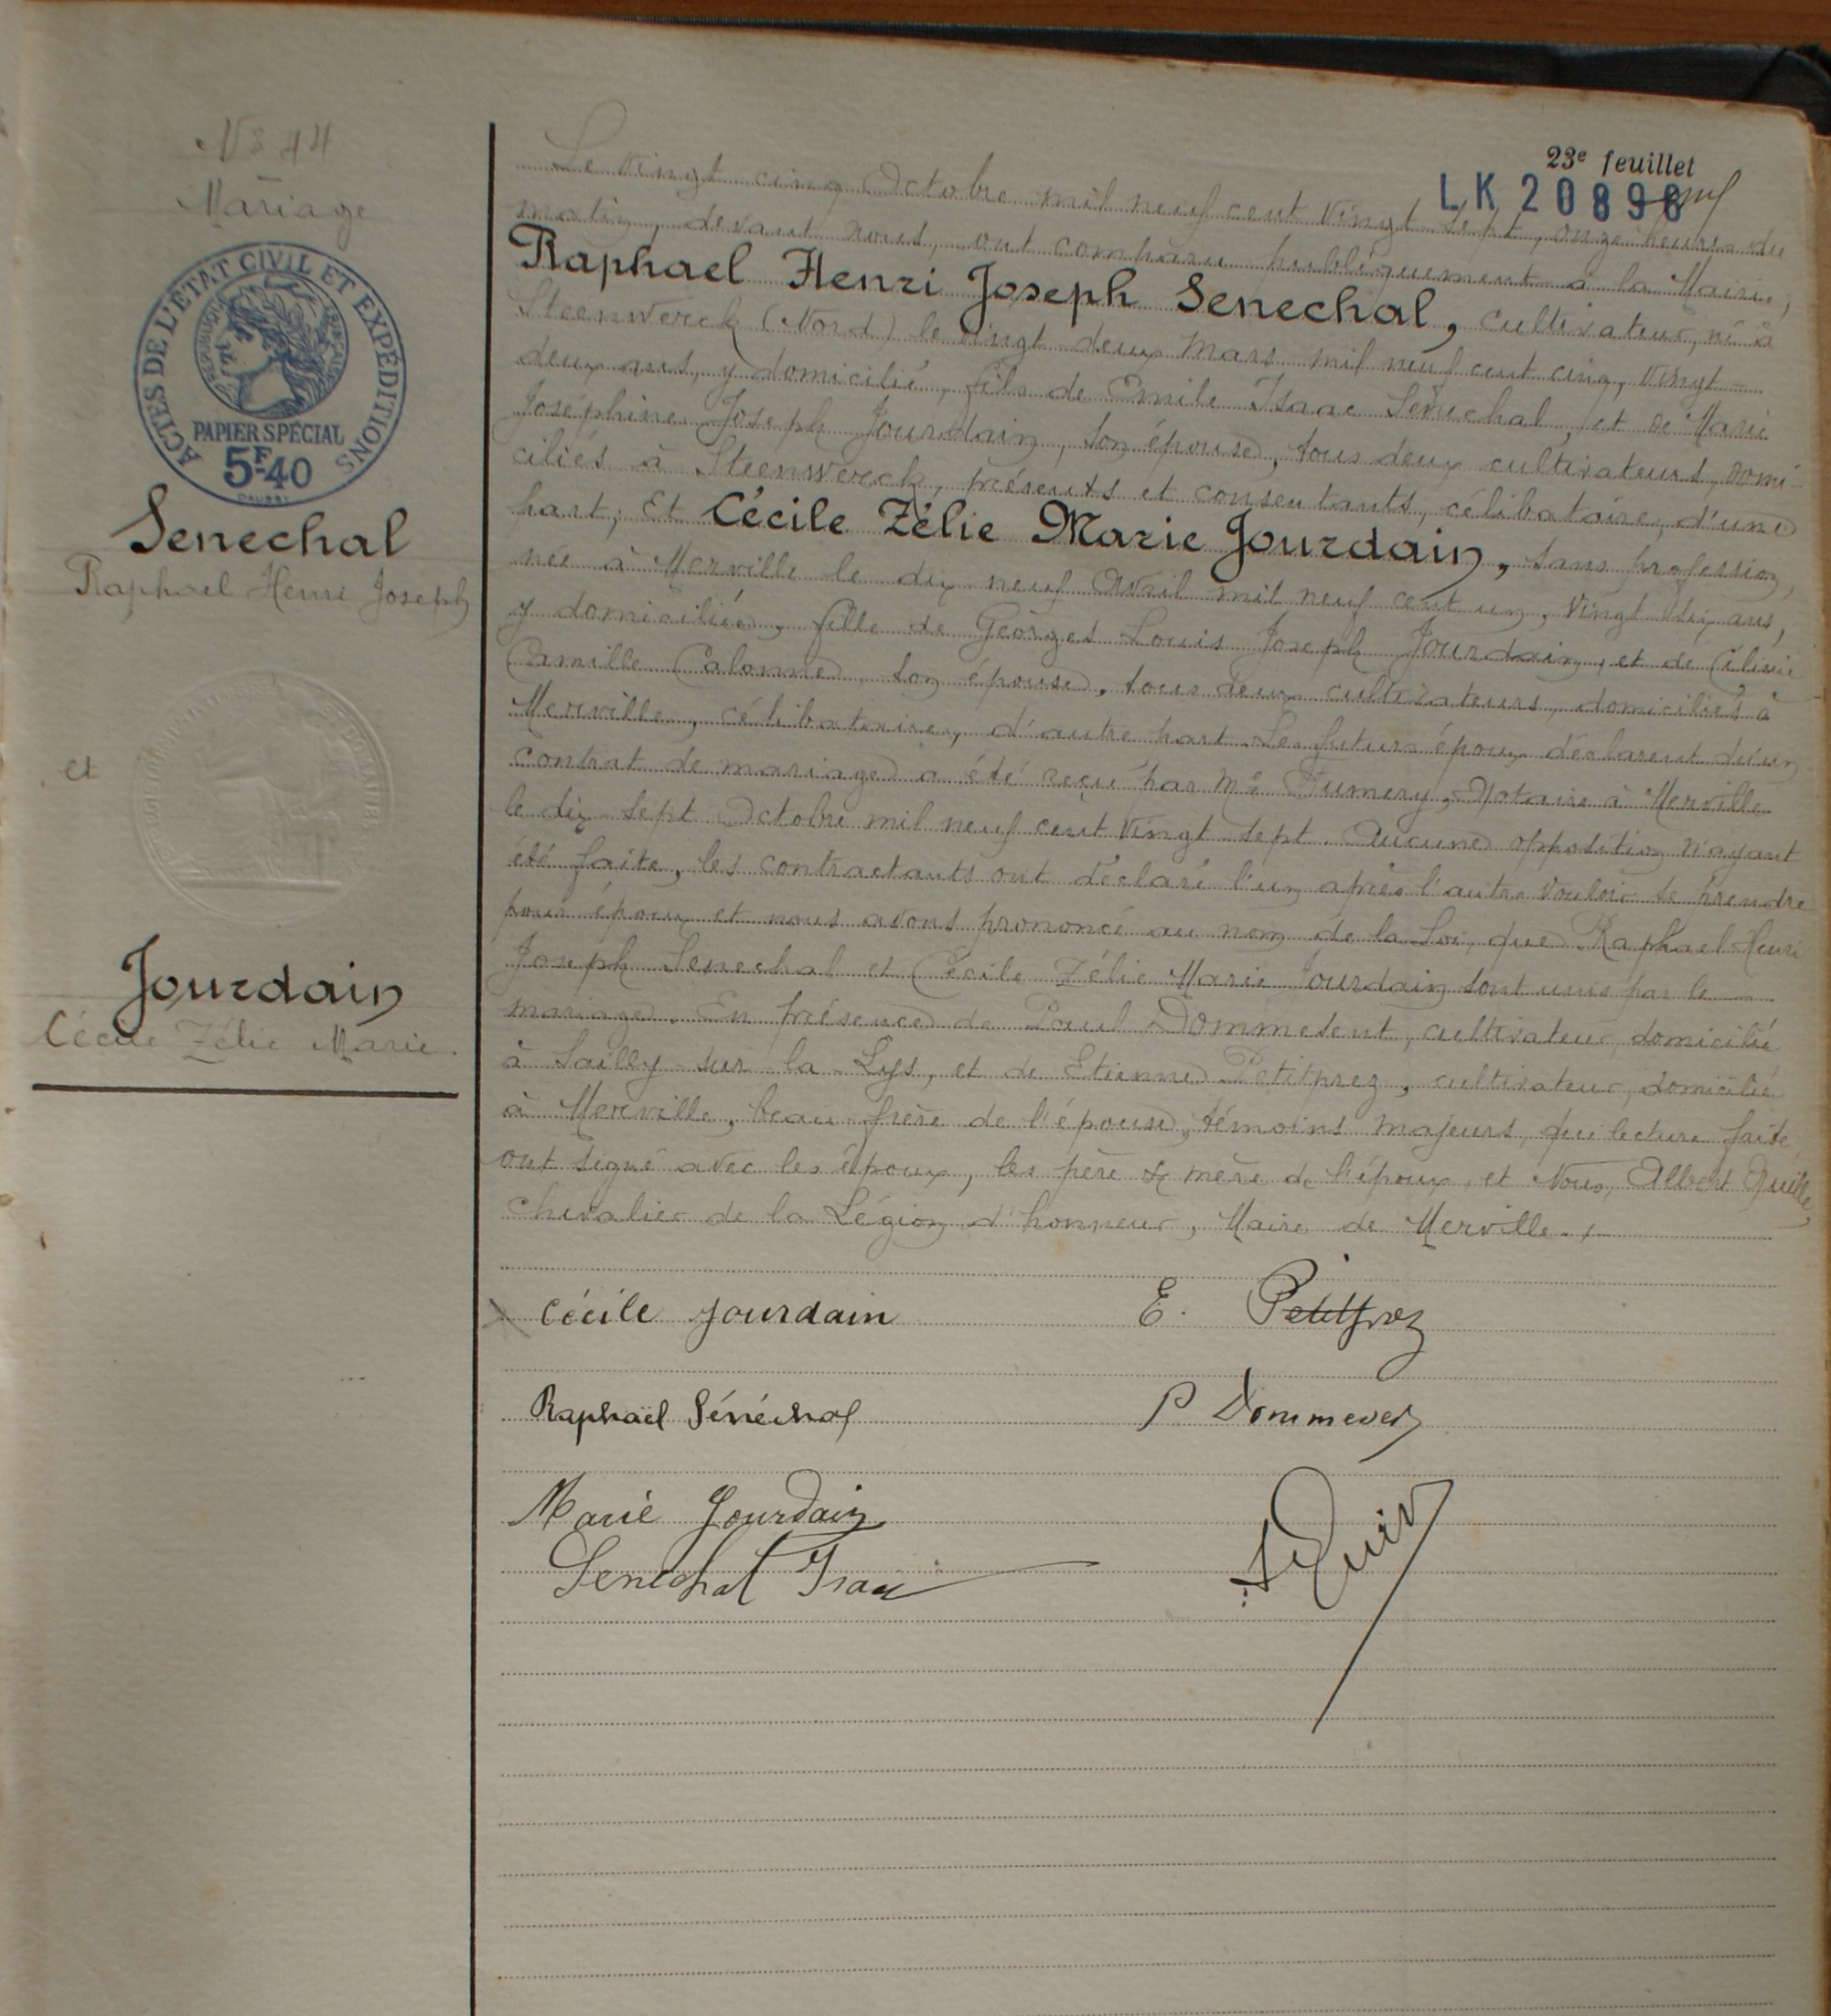 23e feuillet
LK 20898
No 44
Mariage
ACTES DE L'ÉTAT CIVIL ET EXPÉDITIONS
REPUBLIQUE FRANÇAISE
PAPIER SPÉCIAL
5F.40
Senechal
Raphael Henri Joseph
et
Jourdain
Cécile Zélie Marie.
Le vingt cinq Octobre mil neuf cent vingt sept, onze heures du
matin, devant nous, ont comparu publiquement à la Mairie,
Raphael Henri Joseph Senechal, cultivateur, né à
Steenwerck (Nord) le vingt deux Mars mil neuf cent cinq, vingt-
deux ans, y domicilié, fils de Emile Isaac Senechal, et de Marie
Joséphine Joseph Jourdain, son épouse, tous deux cultivateurs, domi-
ciliés à Steenwerck, présents et consentants, célibataire, d'une
part; Et Cécile Zélie Marie Jourdain, sans profession,
née à Merville le dix neuf Avril mil neuf cent un, vingt six ans,
y domiciliée, fille de Georges Louis Joseph Jourdain, et de Célinie
Camille Calonne, son épouse, tous deux cultivateurs, domiciliés à
Merville, célibataire, d'autre part. Les futurs époux déclarent qu'un
contrat de mariage a été reçu par Me Notaire à Merville
le dix-sept Octobre mil neuf cent vingt-sept. Aucune opposition n'ayant
été faite, les contractants ont déclaré l'un après l'autre vouloir se prendre
pour époux et nous avons prononcé au nom de la Loi, que Raphael Henri
Joseph Senechal et Cécile Zélie Marie Jourdain sont unis par le
mariage. En présence de Paul Dommesent, cultivateur, domicilié
à Sailly-sur-la-Lys, et de Etienne Petitprez, cultivateur, domicilié
à Merville, beau-frère de l'épouse, témoins majeurs, qui lecture faite,
ont signé avec les époux, les père & mère de l'époux, et Nous, Albert
Chevalier de la Légion d'honneur, Maire de Merville./.
Cécile Jourdain
E. Petitprez
Raphaël Sénéchal
P Dommesent
Marie Jourdain
Senechal Isaac